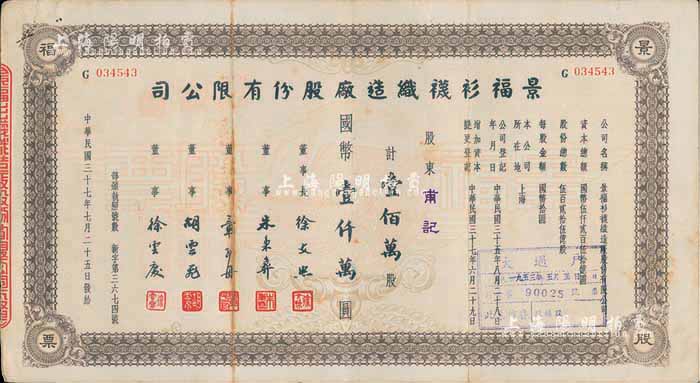 上海陽明拍賣
福
景
G 034543
G 034543
景福衫襪織造廠股份有限公司
公司名稱 景福衫襪織造廠股份有限公司
資本總額 國幣伍仟貳百
股份總數 伍百貳拾伍億股
每股金額 國幣拾圓
本公司所在地 上海
公司登記年月日 中華民國三十五年八月二十八日
增加資本變更登記 中華民國三十七年六月二十九日
股東 甫記
計壹佰萬股
國幣壹仟萬圓
董事長 徐文照
董事 朱東彝
董事
董事 胡雲
董事 徐雲慶
新字第三六七四號
中華民國三十七年七月二十五日發給
90025
上海陽明拍賣
上海陽明拍賣
票
股